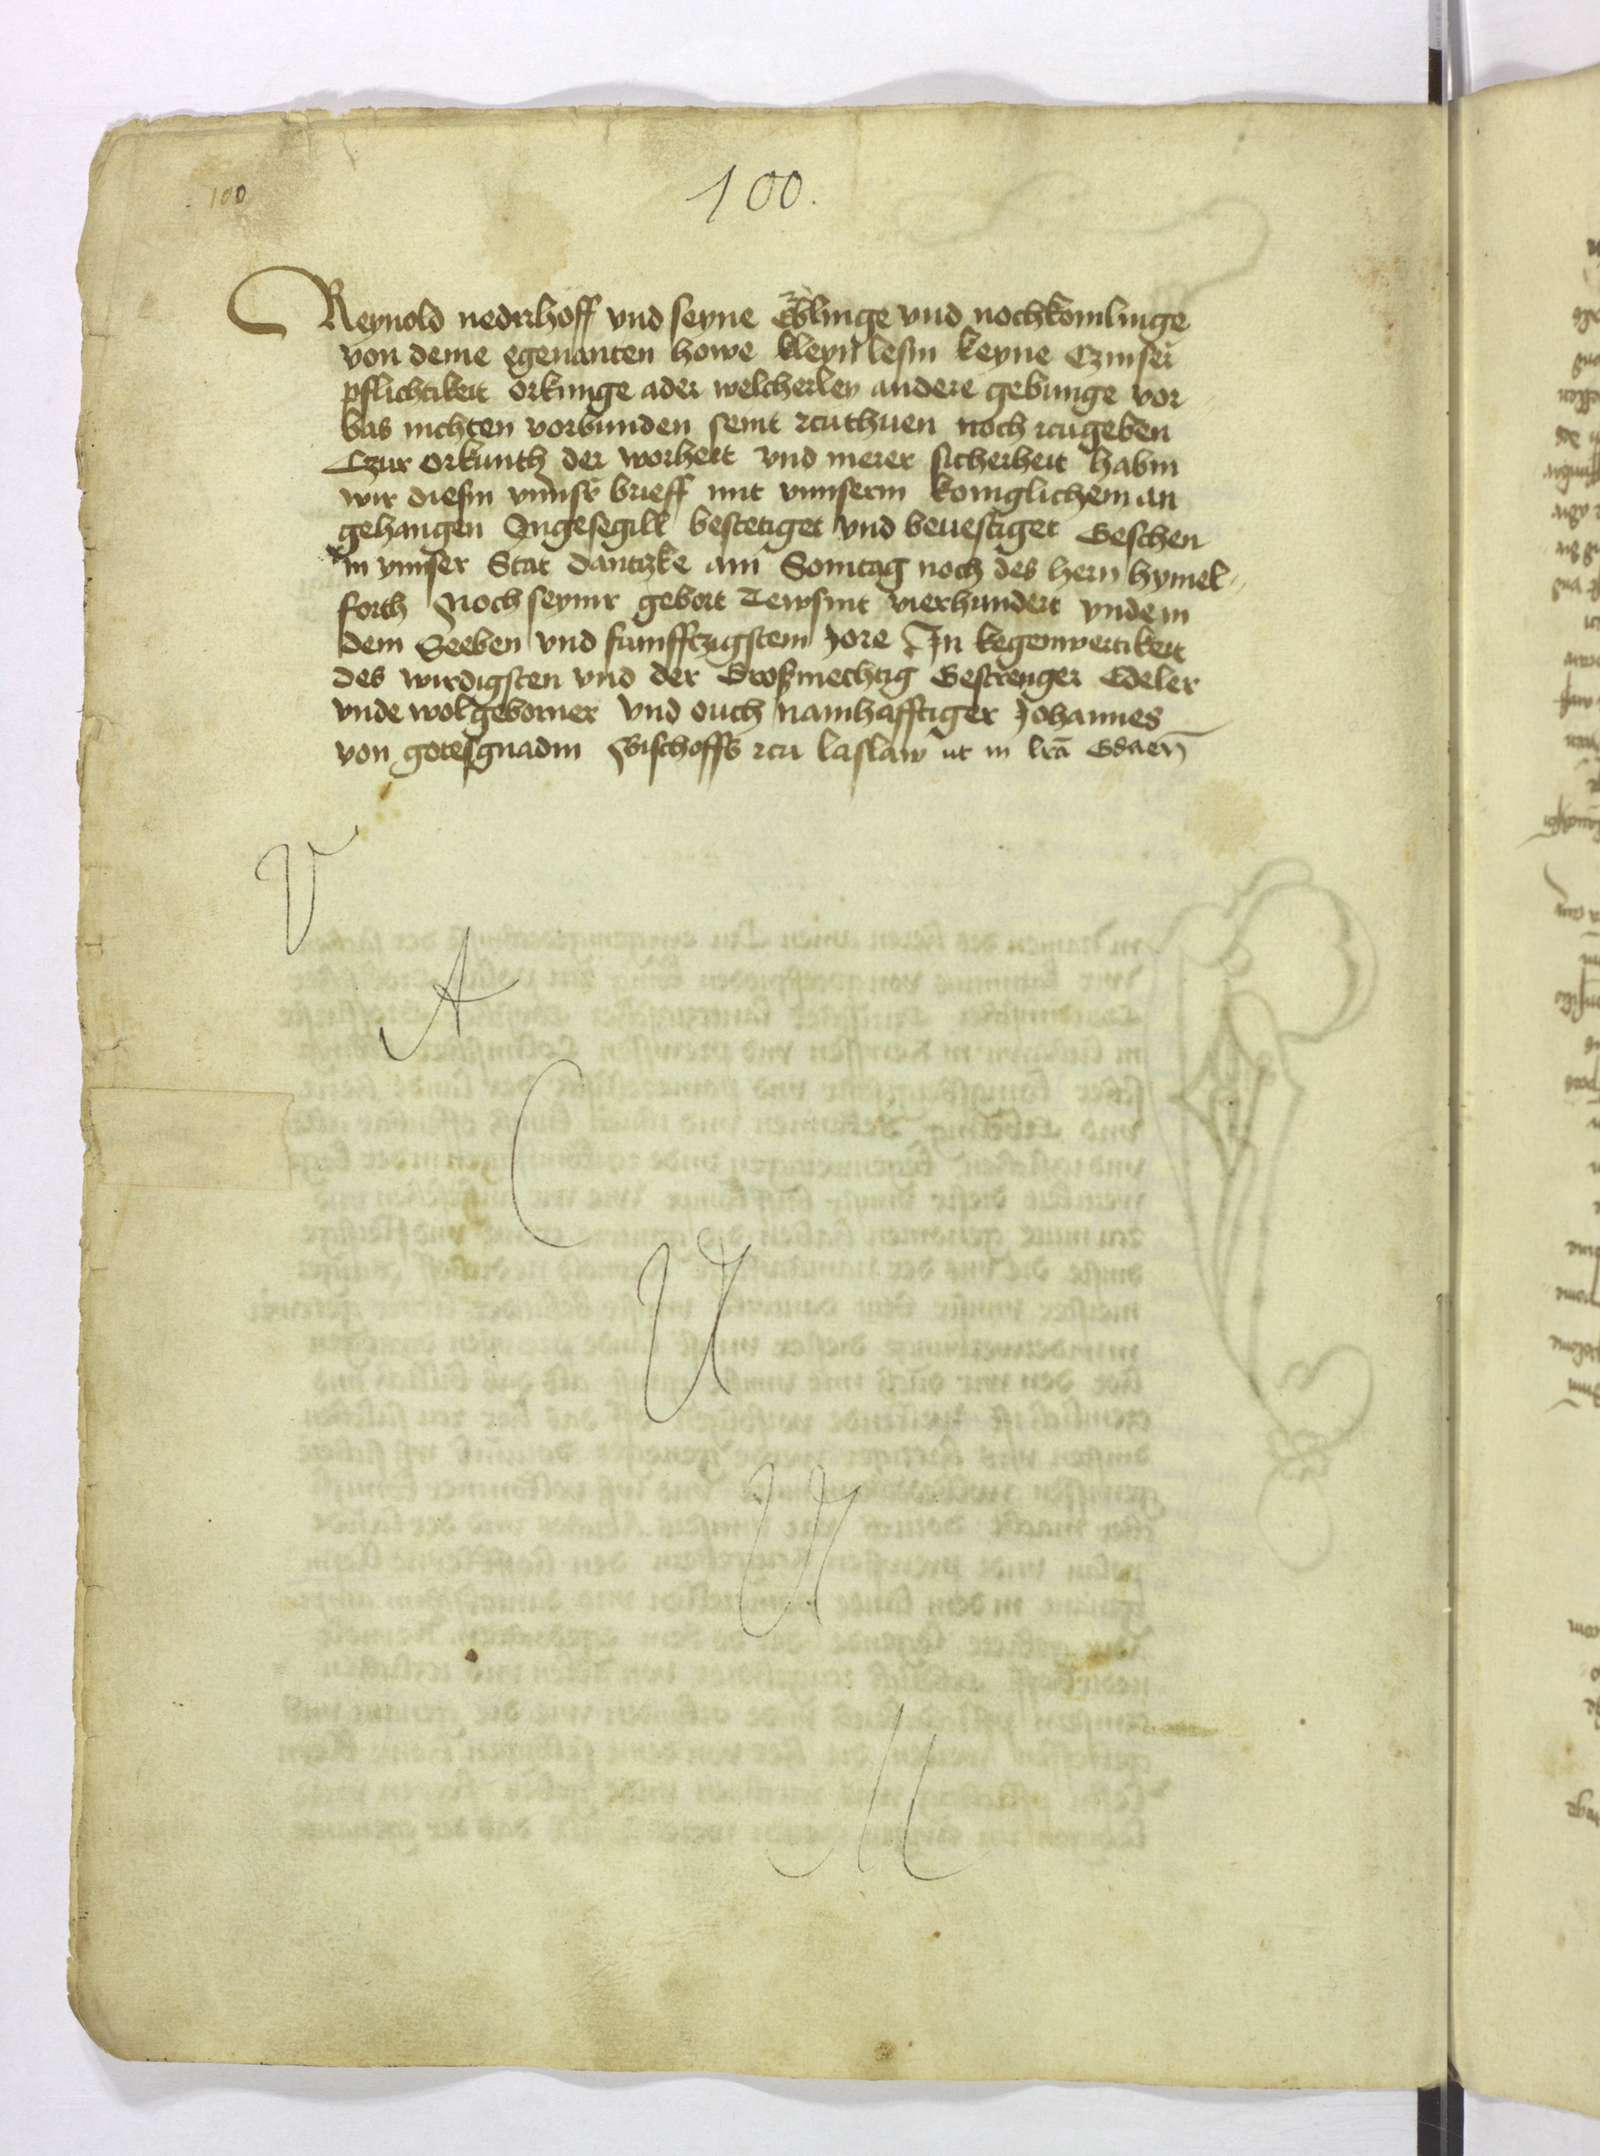 100
100.
Reynold nedrhoff vnd seyne Erblinge vnd nochkomlinge
von deme egenanten howe kleyn lesin keyne Czinser
pflichtikeit orkunge ader welcherley andere gebunge vor
bas nichten vorbunden seint zcuthuen noch zcugeben
Czur orkunth der worheit vnd merer sicherheit habin
wir diesin vnnsr brieff mit vnnserm koniglichem an
gehangen Ingesegill bestetiget vnd beuestiget Geschen
in vnnser Stat dantzke am Sontag noch des hern hymel-
forth Noch seynir gebort Tewsint vierhundert vnde in
dem Seeben vnd funffczigstem Jore In kegenwertikeit
des wirdigsten vnd der Großmechtig Gestrenger Edeler
vnde wolgeborner vnd ouch namhafftiger Johannes
von gotesgnadin Bischoffs zcu laslaw ut in lra Gdaen
V
A
C
U
U
M